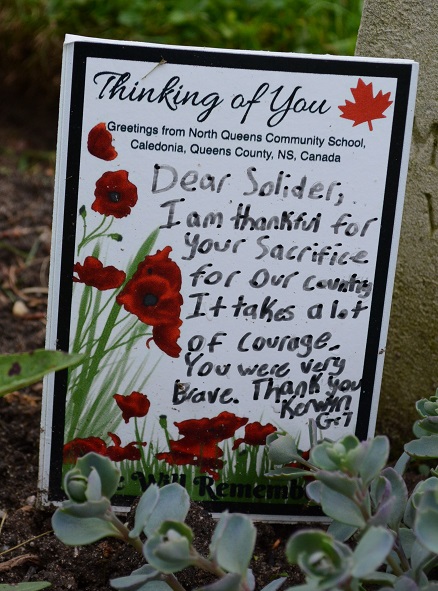 Thinking of You
Greetings from North Queens Community School,
Caledonia, Queens County, NS, Canada
Dear Solider,
I am thankful for
your Sacrifice
for our country
It takes a lot
of courage.
You were very
Brave. Thank you
Kerwin
Gr.7
We Will Remember